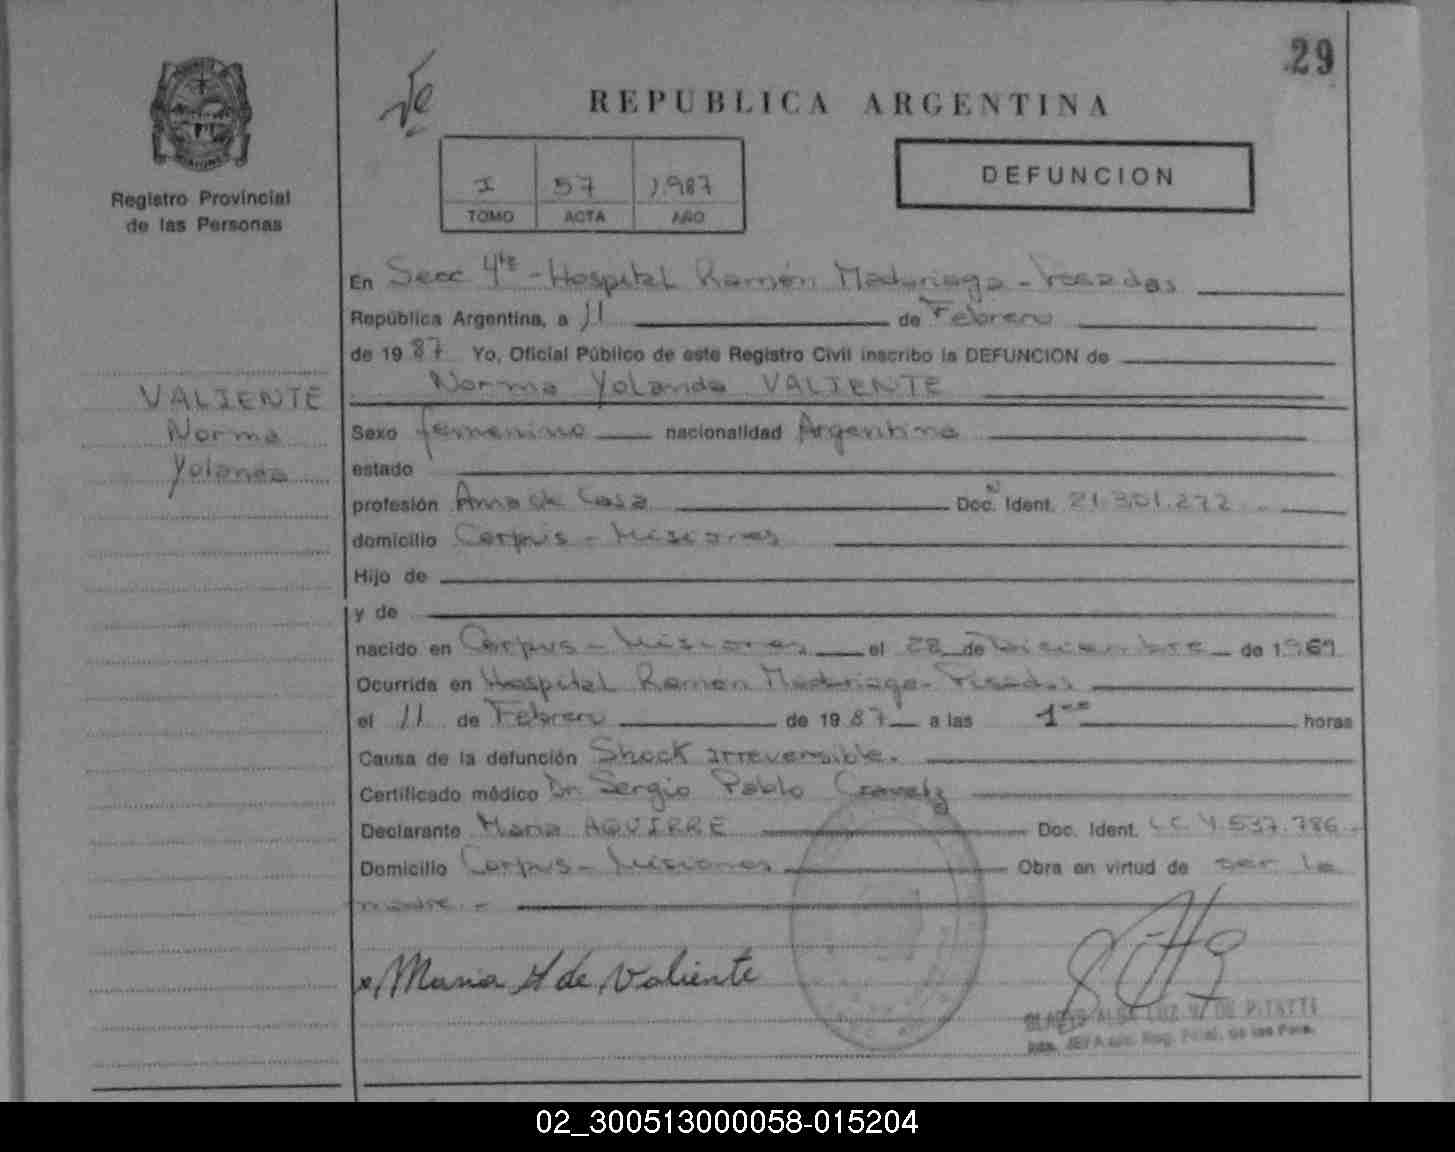 29
REPUBLICA ARGENTINA
DEFUNCION
I 57 1.987
TOMO ACTA AÑO
Registro Provincial
de las Personas
En Secc 4ta - Hospital Ramón Madariaga - Posadas
República Argentina, a 11 de Febrero
de 1987 Yo, Oficial Público de este Registro Civil inscribo la DEFUNCION de
Norma Yolanda VALIENTE
VALIENTE
Norma
Yolanda
Sexo femenino nacionalidad Argentina
estado
profesión Ama de Casa Doc. Ident. 21.301.272
domicilio Corpus - Misiones
Hijo de
y de
nacido en Corpus - Misiones el 28 de Diciembre de 1.969
Ocurrida en Hospital Ramón Madariaga - Posadas
el 11 de Febrero de 1987 a las 1 horas
Causa de la defunción Shock irreversible.
Certificado médico Dr. Sergio Pablo
Declarante Maria AQUIRRE Doc. Ident. L.C. 4.537.786.-
Domicilio Corpus - Misiones Obra en virtud de ser la
madre.-
Maria A de Valiente
GLADYS ALBA LUZ V. DE PITATTI
JEFA Reg. Pcial. de las Pers.
02_300513000058-015204